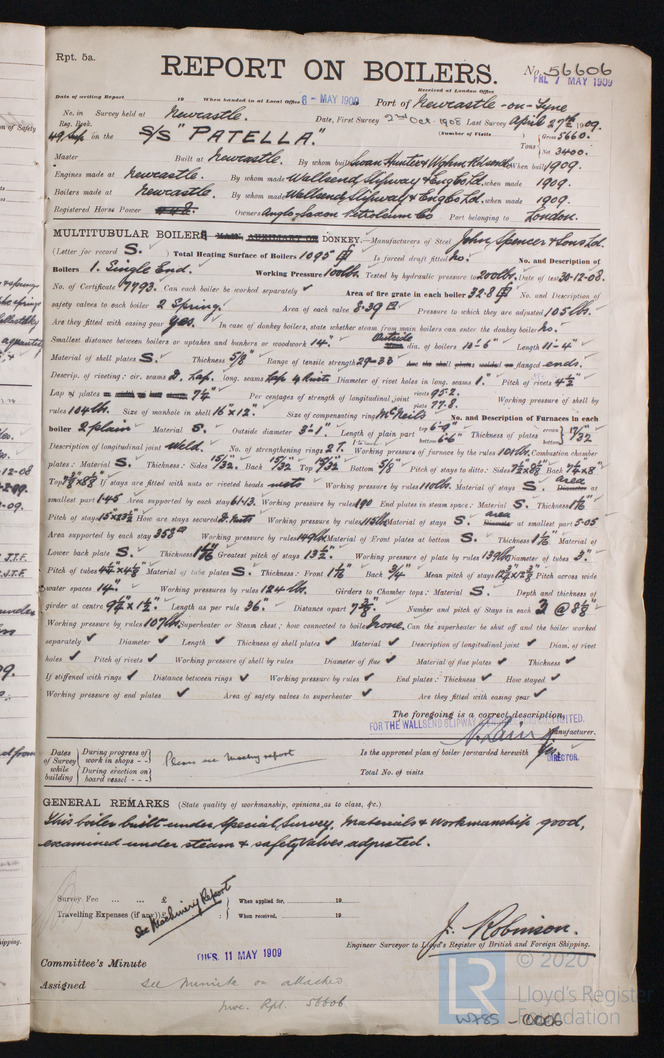 Rpt. 5a.
REPORT ON BOILERS.
No. 56606
FRI. 7 MAY 1909
Date of writing Report 19 When handed in at Local Office 6 - MAY 1909 Port of Newcastle-on-Tyne
Received at London Office
No. in Survey held at Newcastle. Date, First Survey 2nd Oct. 1908 Last Survey April 27th 1909.
Reg. Book.
49 Sup on the S/S "PATELLA." (Number of Visits Tons Gross 5660. Net 3400.
Master Built at Newcastle. By whom built Swan Hunter & Wigham Richardson When built 1909.
Engines made at Newcastle. By whom made Wallsend Slipway & Eng Co Ld. when made 1909.
Boilers made at Newcastle. By whom made Wallsend Slipway & Eng Co Ld. when made 1909.
Registered Horse Power Owners Anglo-Saxon Petroleum Co Port belonging to London.
MULTITUBULAR BOILERS MAIN, AUXILIARY OR DONKEY.—Manufacturers of Steel John Spencer & Sons Ld.
(Letter for record S.) Total Heating Surface of Boilers 1095 Is forced draft fitted No. No. and Description of
Boilers 1. Single End. Working Pressure 100 lbs. Tested by hydraulic pressure to 200 lbs. Date of test 30-12-08.
No. of Certificate 7793. Can each boiler be worked separately ✓ Area of fire grate in each boiler 32.8 No. and Description of
safety valves to each boiler 2 Spring. Area of each valve 8.39 Pressure to which they are adjusted 105 lbs.
Are they fitted with easing gear Yes. In case of donkey boilers, state whether steam from main boilers can enter the donkey boiler No.
Smallest distance between boilers or uptakes and bunkers or woodwork 14" Outside dia. of boilers 13'-6" Length 11'-4"
Material of shell plates S. Thickness 5/8" Range of tensile strength 29-33 Are the shell plates welded or flanged ends.
Descrip. of riveting: cir. seams D. Lap. long. seams Lap 4 Rivts Diameter of rivet holes in long. seams 1" Pitch of rivets 4½"
Lap of plates 7¼" Per centages of strength of longitudinal joint rivets 95.2. plate 77.8. Working pressure of shell by
rules 104 lbs. Size of manhole in shell 16"×12" Size of compensating ring McNeils No. and Description of Furnaces in each
boiler 2 plain Material S. Outside diameter 3'-1" Length of plain part top 6'-9" bottom 6'-6" Thickness of plates crown bottom 17/32
Description of longitudinal joint Weld. No. of strengthening rings 2 T. Working pressure of furnace by the rules 101 lbs. Combustion chamber
plates: Material S. Thickness: Sides 15/32. Back 17/32 Top 17/32 Bottom 5/8" Pitch of stays to ditto: Sides Back 7¼"×8"
Top If stays are fitted with nuts or riveted heads nuts Working pressure by rules 110 lbs. Material of stays S. Area Diameter at
smallest part 1.45 Area supported by each stay 61.13. Working pressure by rules 190 End plates in steam space: Material S. Thickness 1 1/16"
Pitch of stays 15"×23½" How are stays secured D. Nuts Working pressure by rules 115 lbs Material of stays S. Area Diameter at smallest part 5.05
Area supported by each stay 353 Working pressure by rules 149 lbs Material of Front plates at bottom S. Thickness 1 1/16 Material of
Lower back plate S. Thickness 1 1/16 Greatest pitch of stays 13½" Working pressure of plate by rules 139 lbs Diameter of tubes 3"
Pitch of tubes Material of tube plates S. Thickness: Front 1 1/16 Back 3/4" Mean pitch of stays Pitch across wide
water spaces 14" Working pressures by rules 124 lbs. Girders to Chamber tops: Material S. Depth and thickness of
girder at centre Length as per rule 36" Distance apart Number and pitch of Stays in each
Working pressure by rules 107 lbs Superheater or Steam chest: how connected to boiler None. Can the superheater be shut off and the boiler worked
separately ✓ Diameter ✓ Length ✓ Thickness of shell plates ✓ Material ✓ Description of longitudinal joint ✓ Diam. of rivet
holes ✓ Pitch of rivets ✓ Working pressure of shell by rules Diameter of flue ✓ Material of flue plates ✓ Thickness ✓
If stiffened with rings ✓ Distance between rings ✓ Working pressure by rules ✓ End plates: Thickness ✓ How stayed ✓
Working pressure of end plates ✓ Area of safety valves to superheater ✓ Are they fitted with easing gear ✓
The foregoing is a correct description,
FOR THE WALLSEND SLIPWAY LIMITED.
Manufacturer.
DIRECTOR.
Dates of Survey while building
During progress of work in shops - -
During erection on board vessel - - -
Please see Machy report
Is the approved plan of boiler forwarded herewith Yes
Total No. of visits
GENERAL REMARKS (State quality of workmanship, opinions as to class, &c.)
This boiler built under Special Survey, Materials & workmanship good,
examined under steam & safety valves adjusted.
Survey Fee ... ... £ : : When applied for, 19
Travelling Expenses (if any) £ : : When received, 19
See Machinery Report
J. Robinson.
Engineer Surveyor to Lloyd's Register of British and Foreign Shipping.
Committee's Minute TUES. 11 MAY 1909
Assigned See minute on attached
Mce. Rpt. 56606
LR
© 2020
Lloyd's Register
Foundation
W785-0006